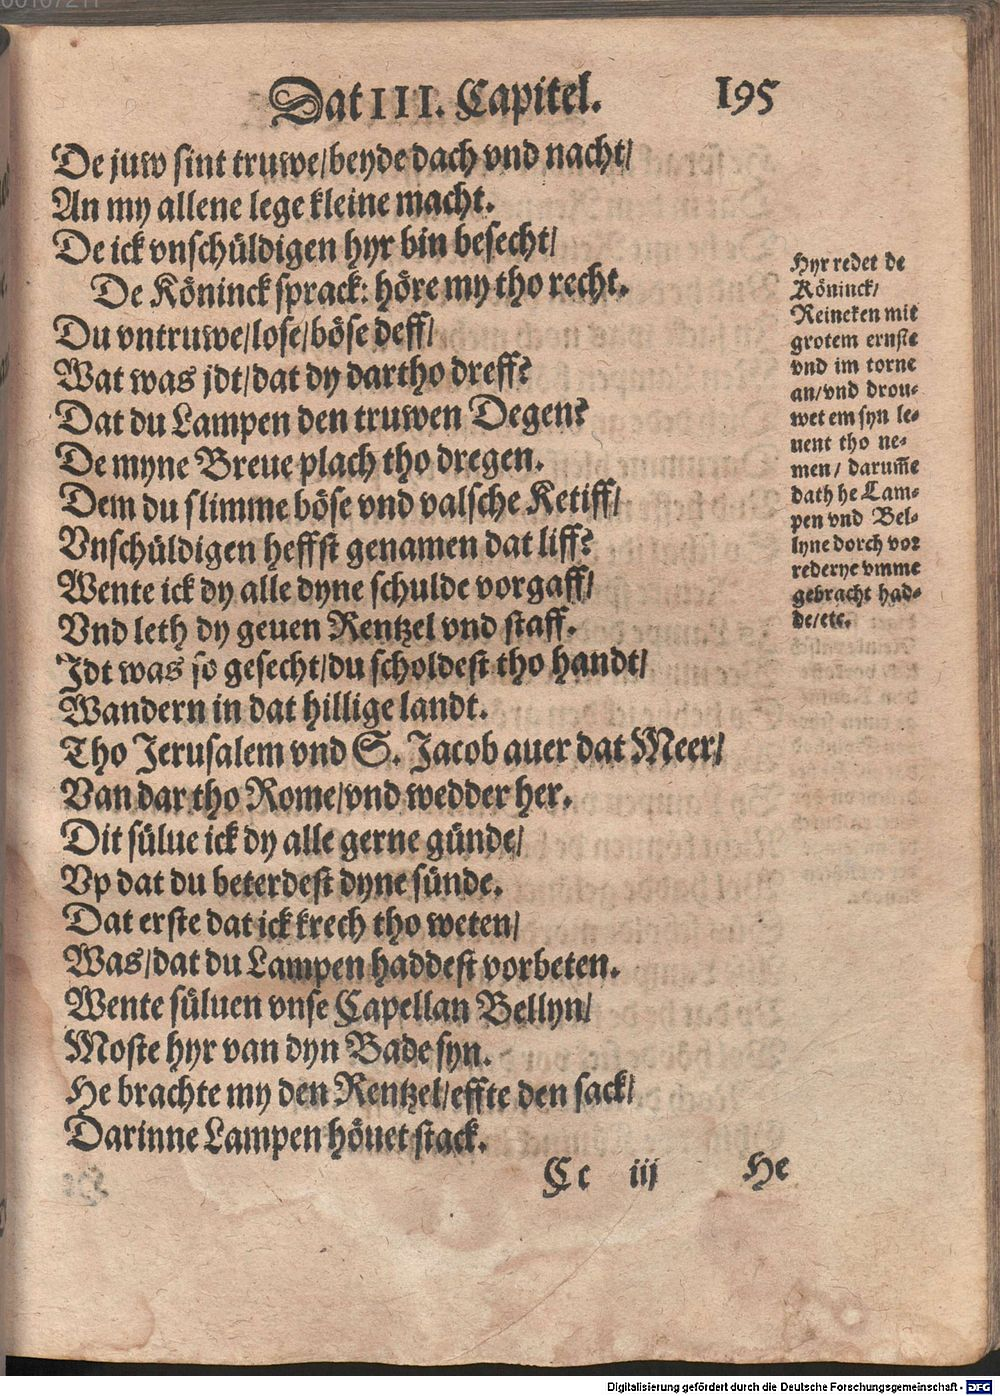 Dat III. Capitel. 195
De juw sint truwe/beyde dach vnd nacht/
An my allene lege kleine macht.
De ick vnschüldigen hyr bin besecht/
De Köninck sprack: höre my tho recht.
Du vntruwe/lose/böse deff/
Wat was jdt/dat dy dartho dreff?
Dat du Lampen den truwen Degen?
De myne Breue plach tho dregen.
Dem du slimme böse vnd valsche Ketiff/
Vnschüldigen heffst genamen dat liff?
Wente ick dy alle dyne schulde vorgaff/
Vnd leth dy geuen Rentzel vnd staff.
Jdt was so gesecht/du scholdest tho handt/
Wandern in dat hillige landt.
Tho Jerusalem vnd S. Jacob auer dat Meer/
Van dar tho Rome/vnd wedder her.
Dit sülue ick dy alle gerne günde/
Vp dat du beterdest dyne sünde.
Dat erste dat ick krech tho weten/
Was/dat du Lampen haddest vorbeten.
Wente süluen vnse Capellan Bellyn/
Moste hyr van dyn Bade syn.
He brachte my den Rentzel/effte den sack/
Darinne Lampen höuet stack.
Cc iij He
Hyr redet de
Köninck/
Reineken mit
grotem ernste
vnd im torne
an/vnd drou-
wet em syn le-
uent tho ne-
men/ darum̃e
dath he Lam-
pen vnd Bel-
lyne dorch vor
rederye vmme
gebracht had-
de/etc.
Digitalisierung gefördert durch die Deutsche Forschungsgemeinschaft - DFG